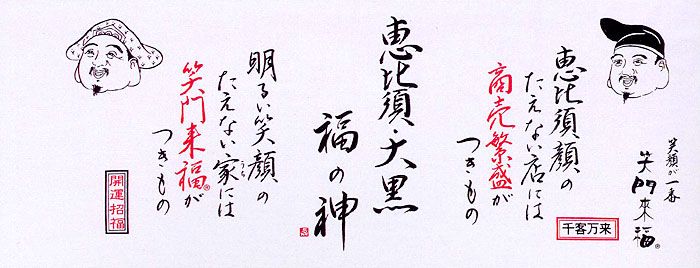 笑顔が一番
笑門来福®
恵比須顔の
たえない店には
商売繁盛が
つきもの
千客万来
恵比須・大黒
福の神
明るい笑顔の
たえない家には
うち
笑門来福®が
つきもの
開運招福